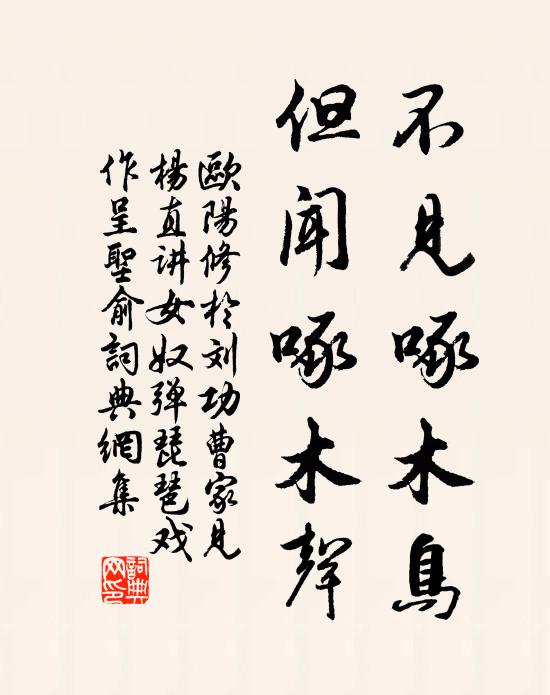 不見啄木鳥
但聞啄木聲
歐陽修於刘功曹家見
楊直讲女奴弹琵琶戏
作呈聖俞詞典網集
詞典
网印